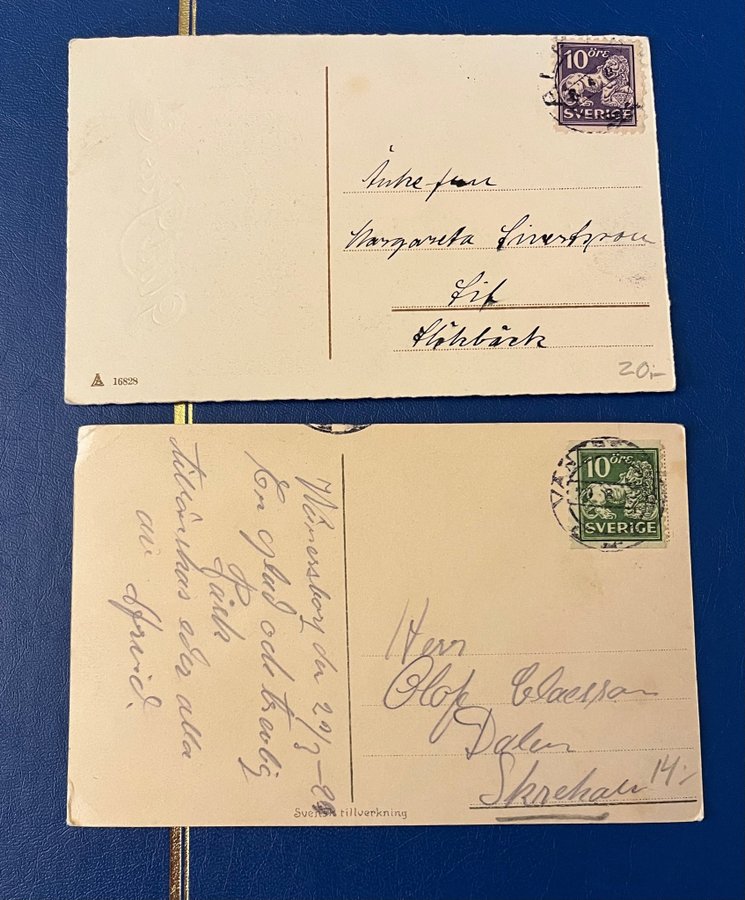 10 öre
SVERIGE
Änkefru
Margareta Sivertzson
Flöhbäck
16828
20:-
10 öre
SVERIGE
VÄN
Wänersborg den 29/3 -29
En glad och trevlig
Påsk
tillönskas eder alla
av Arvid.
Herr
Olof Claesson
Dalen
Skrehalla
14:-
Svensk tillverkning